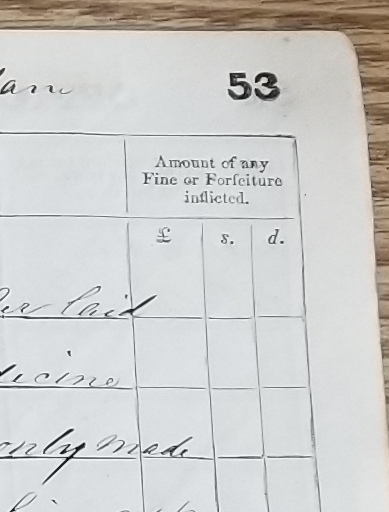 53
Amount of any
Fine or Forfeiture
inflicted.
£ s. d.
laid
only made